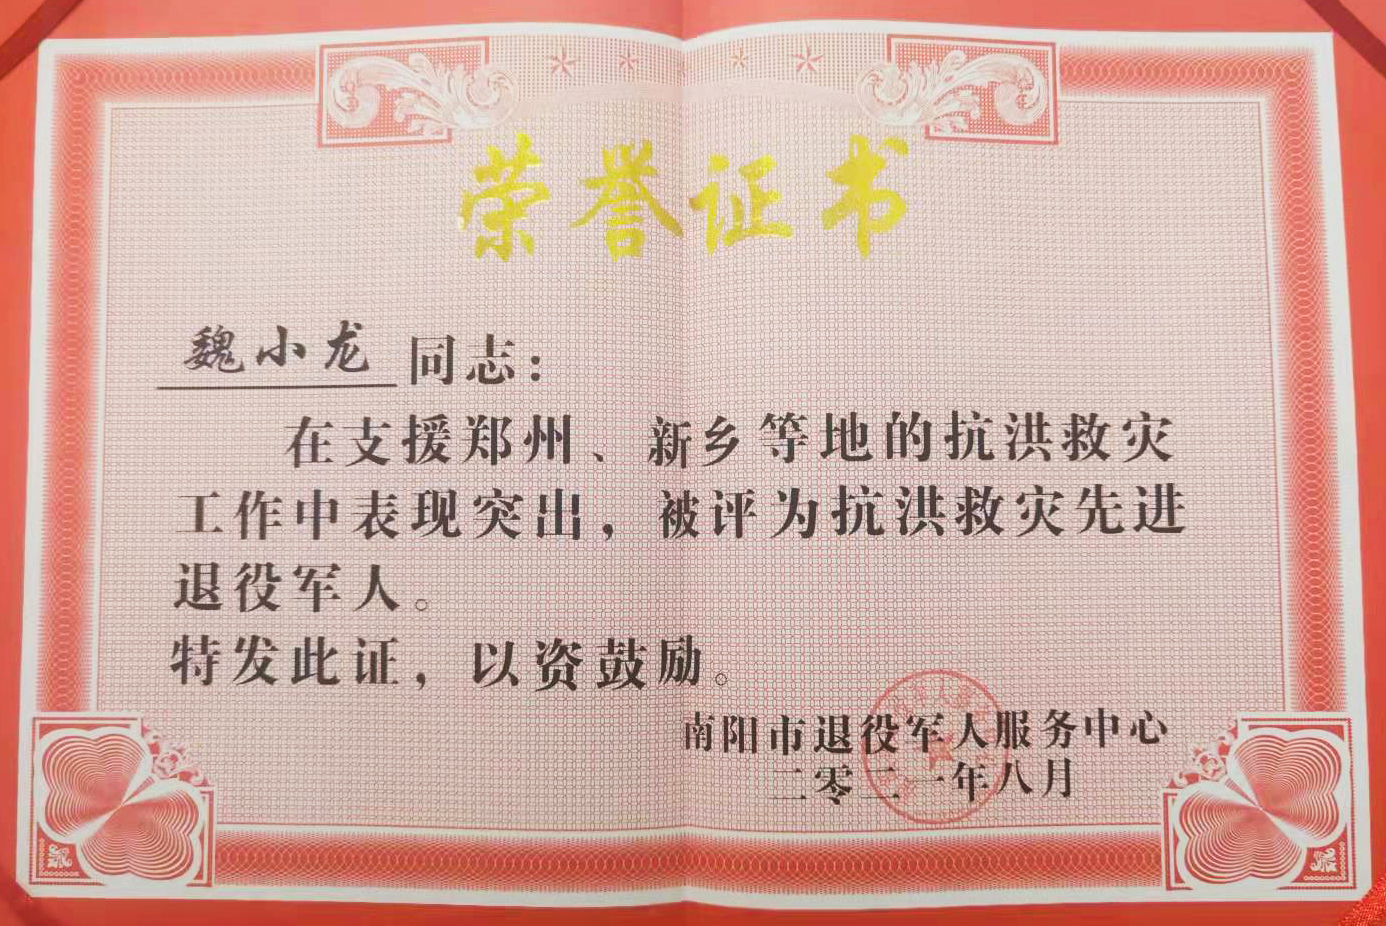 荣誉证书
魏小龙 同志：
在支援郑州、新乡等地的抗洪救灾
工作中表现突出，被评为抗洪救灾先进
退役军人。
特发此证，以资鼓励。
南阳市退役军人服务中心
二零二一年八月